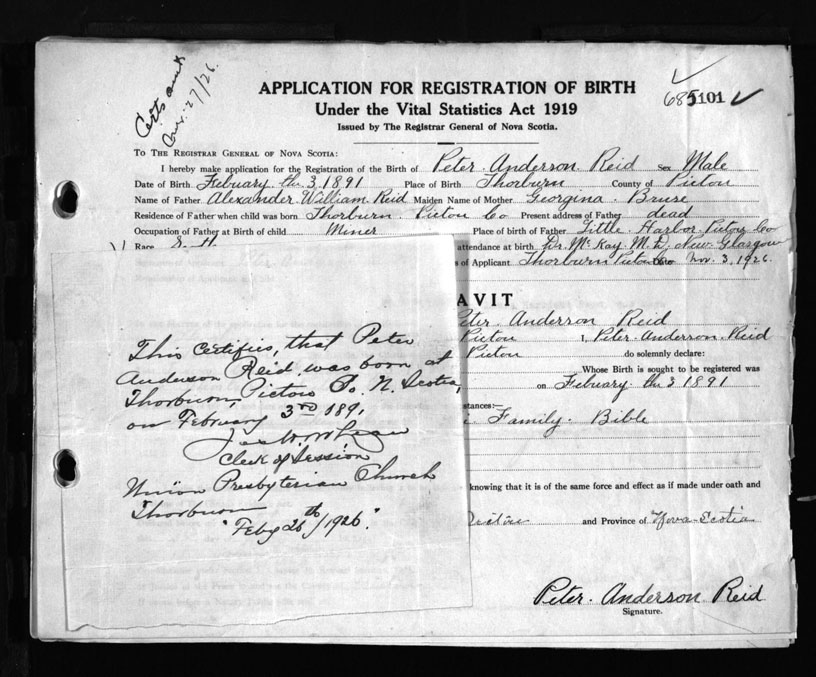 Certs sent
Nov. 27/26.
APPLICATION FOR REGISTRATION OF BIRTH
685101
Under the Vital Statistics Act 1919
Issued by The Registrar General of Nova Scotia.
To The Registrar General of Nova Scotia:
I hereby make application for the Registration of the Birth of Peter. Anderson. Reid Sex Male
Date of Birth Febuary. th. 3. 1891 Place of Birth Thorburn County of Pictou
Name of Father Alexander William Reid Maiden Name of Mother Georgina. Bruse
Residence of Father when child was born Thorburn. Pictou Co Present address of Father dead
Occupation of Father at Birth of child Miner Place of birth of Father Little Harbor. Pictou Co
Race S. H. attendance at birth Dr. McKay M.D. New. Glasgow
s of Applicant Thorburn Pictou Co Date Nov. 3, 1926.
AVIT
Peter. Anderson Reid
Pictou I, Peter. Anderson. Reid
Pictou do solemnly declare:
Whose Birth is sought to be registered was
on Febuary. th 3 1891
stances:—
Family. Bible
knowing that it is of the same force and effect as if made under oath and
Pictou and Province of Nova-Scotia
Peter. Anderson Reid
Signature.
This Certifies, that Peter
Anderson Reid was born at
Thorburn, Pictou Co. N. Scotia,
on February 3rd 1891
Clerk of Session
Union Presbyterian Church
Thorburn
"Feby 26th/1926."